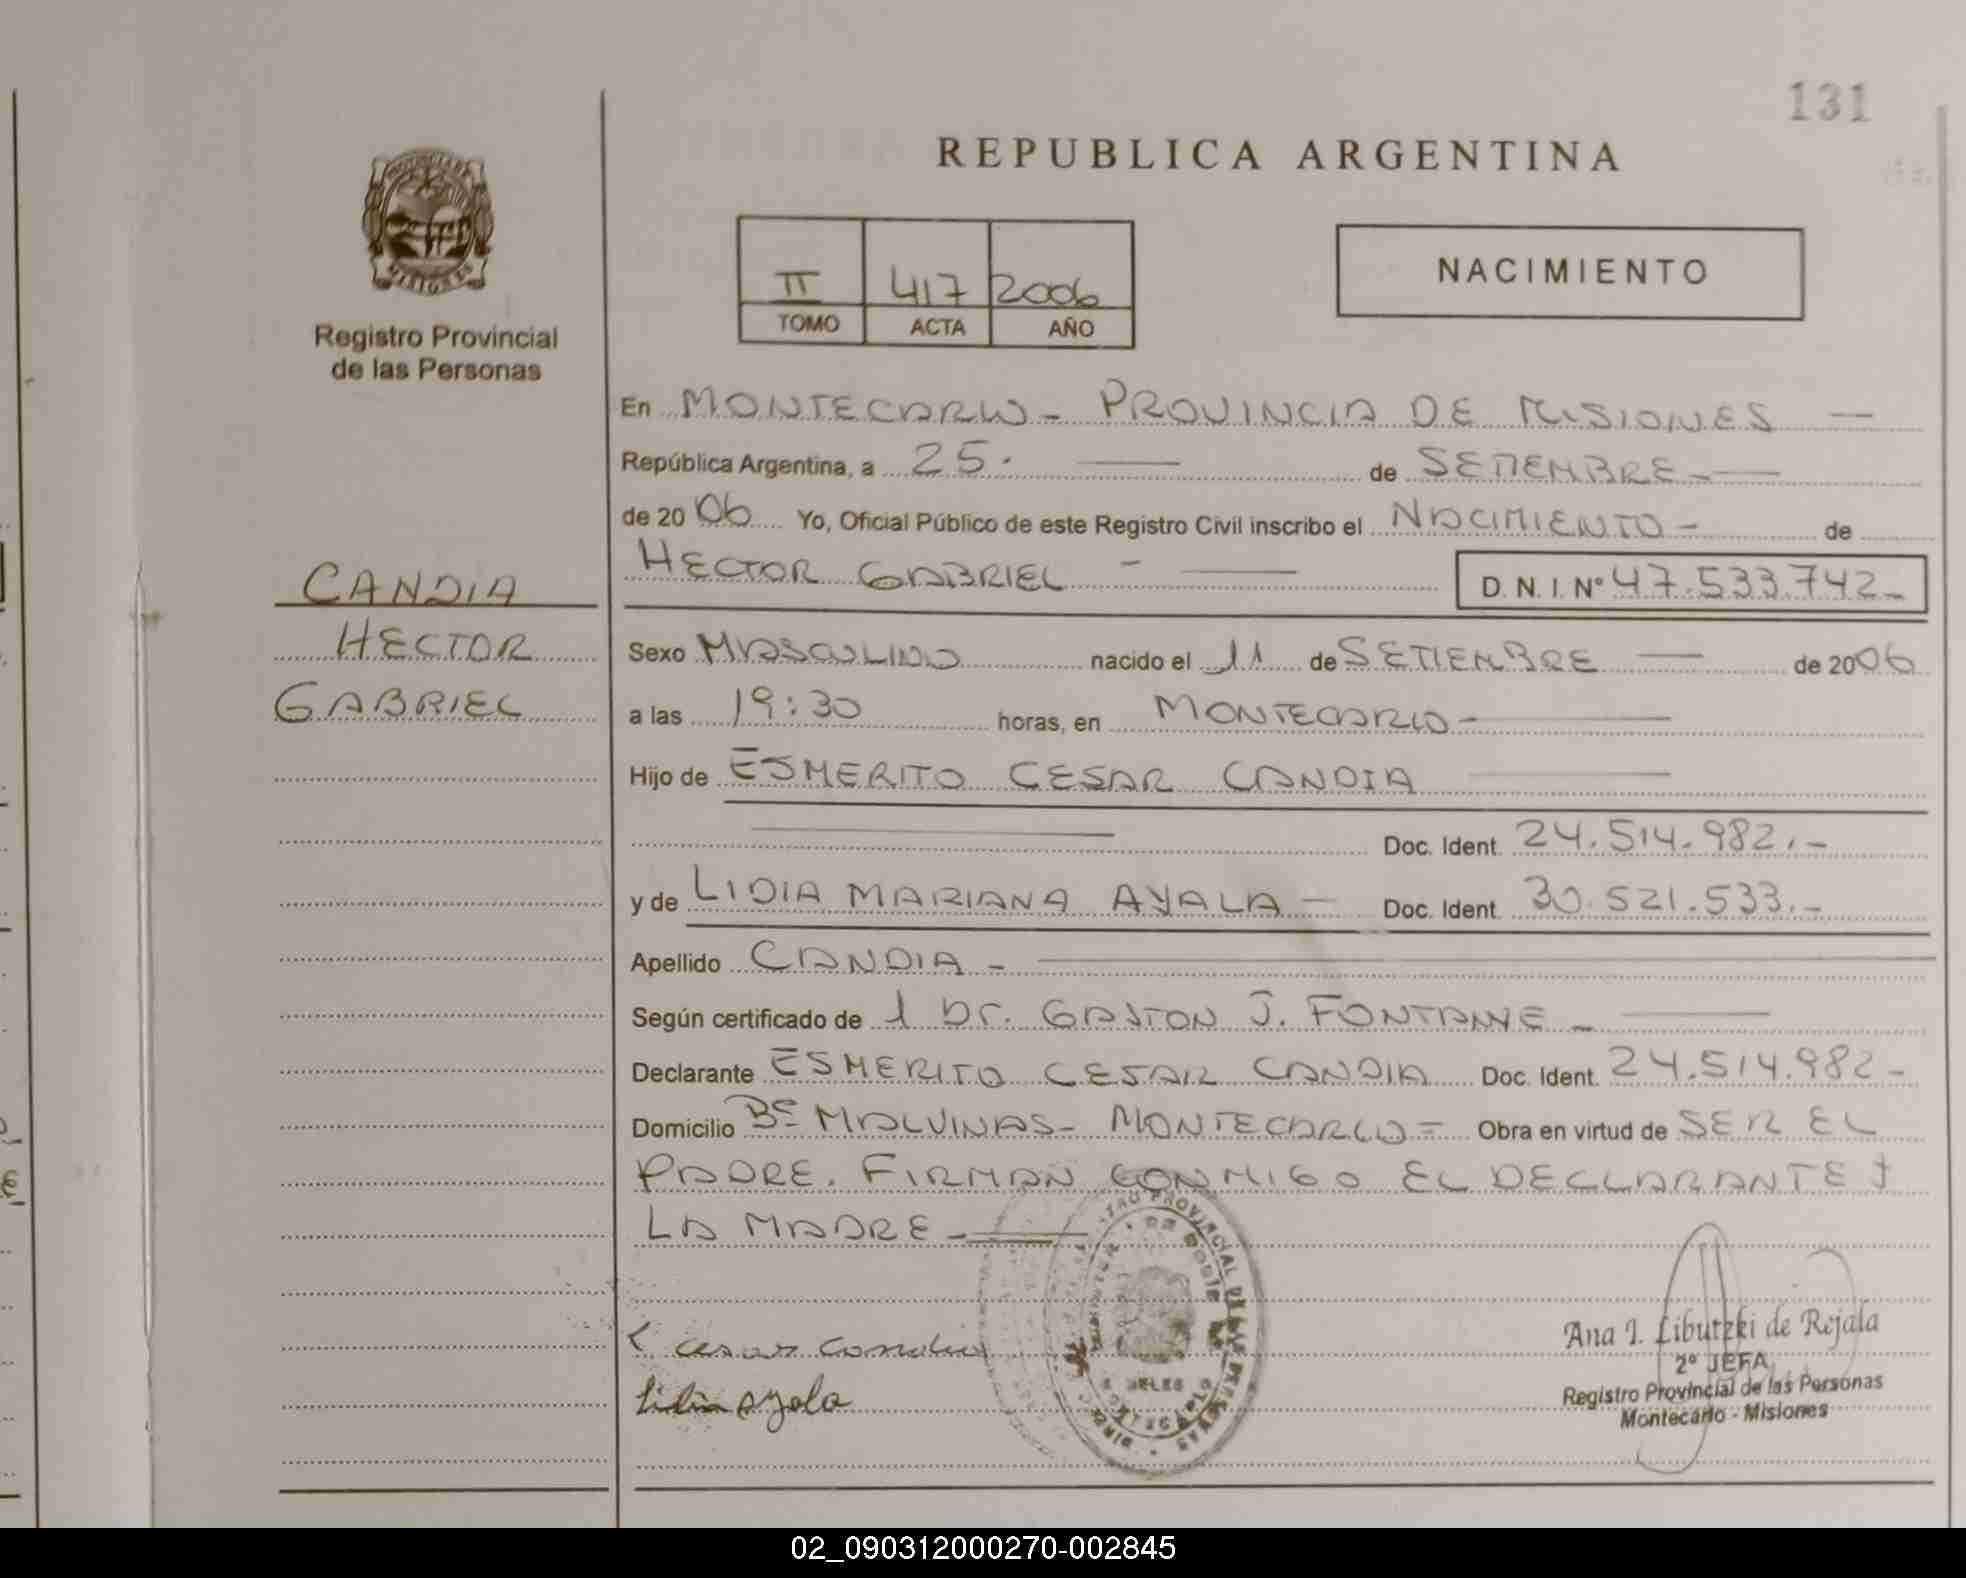 131
REPUBLICA ARGENTINA
PROVINCIA DE
MISIONES
Registro Provincial
de las Personas
II 417 2006
TOMO ACTA AÑO
NACIMIENTO
En MONTECARLO - PROVINCIA DE MISIONES —
República Argentina, a 25. — de SETIEMBRE - —
de 2006 Yo, Oficial Público de este Registro Civil inscribo el NACIMIENTO - de
HECTOR GABRIEL - — D. N. I. N° 47.533.742-
CANDIA
HECTOR
GABRIEL
Sexo MASCULINO nacido el 11 de SETIEMBRE — de 2006
a las 19:30 horas, en MONTECARLO - —
Hijo de ESMERITO CESAR CANDIA —
— Doc. Ident. 24.514.982.-
y de LIDIA MARIANA AYALA - Doc. Ident. 30.521.533.-
Apellido CANDIA - —
Según certificado de 1 Dr. GASTON J. FONTANNE - —
Declarante ESMERITO CESAR CANDIA Doc. Ident. 24.514.982-
Domicilio Bº MALVINAS - MONTECARLO = Obra en virtud de SER EL
PADRE. FIRMAN CONMIGO EL DECLARANTE Y
LA MADRE - —
Cesar Candia
Lidia Ayala
Ana I. Libutzki de Rejala
2º JEFA
Registro Provincial de las Personas
Montecarlo - Misiones
02_090312000270-002845